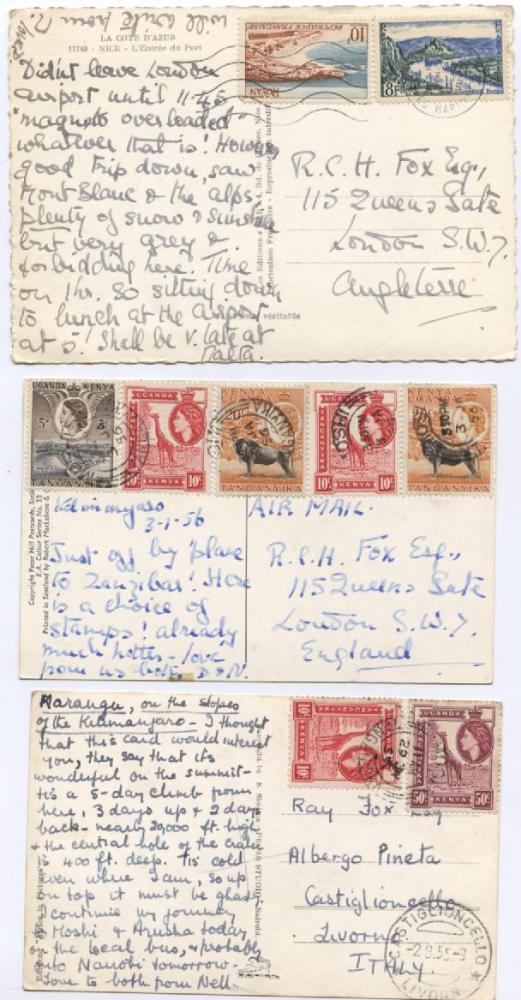 will write from
LA COTE D'AZUR
11749 - NICE - L'Entrée du Port
Didn't leave London
airport until 11.45
"magneto overloaded"
whatever that is! However
good trip down, saw
Mont Blanc & the alps,
plenty of snow & sunshine
but very grey &
forbidding here. Time
on 1 hr. So sitting down
to lunch at the airport
at 5! Shall be v. late at
Malta.
ROYAN
REPUBLIQUE FRANÇAISE
10F
8F
R.C.H. Fox Esq.,
115 Queens Gate
London S.W.7.
Angleterre
UGANDA KENYA
5c
TANGANYIKA
10c 10c
KENYA
TANGANYIKA
10c 10c
KENYA
TANGANYIKA
Copyright Peter Hill Postcards,
E.A. Colour Series No. 33
Printed in Scotland by Robert MacLehose &
Kilimanjaro
3-1-56
Just off by plane
to Zanzibar! Here
is a choice of
stamps! already
much hotter - love
from us both
AIR MAIL.
R.C.H. Fox Esq.,
115 Queens Gate
London S.W.7.
England
Marangu, on the slopes
of the Kilimanjaro - I thought
that this card would interest
you, they say that it's
wonderful on the summit-
tis a 5-day climb from
here, 3 days up & 2 days
back - nearly 20,000 ft. high
& the central hole of the crater
is 400 ft. deep. Tis cold
even where I am, so up
on top it must be ghastly
I continue my journey
to Moshi & Arusha today
by the local bus, & probably
onto Nairobi tomorrow-
Love to both from Nell.
10c 10c
UGANDA
50c 50c
KENYA
Ray Fox Esq
Albergo Pineta
Castiglioncello
Livorno
ITALY
CASTIGLIONCELLO
-2.9.55-9
LIVORNO